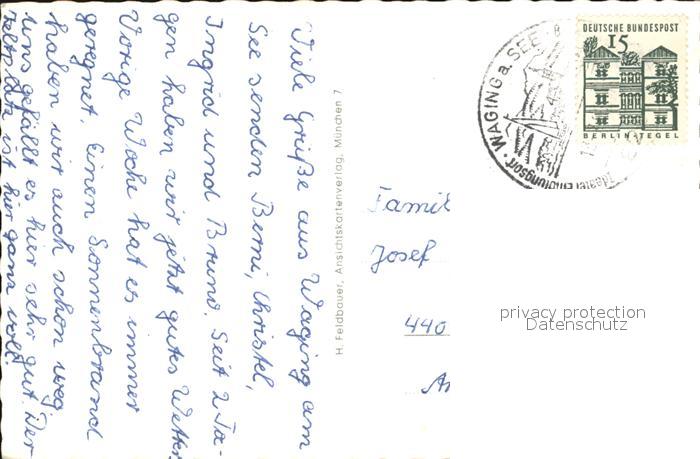 Viele Grüße aus Waging am
See senden Berni, Christel,
Ingrid und Bruno. Seit 2 Ta-
gen haben wir jetzt gutes Wetter.
Vorige Woche hat es immer
geregnet. Einen Sonnenbrand
haben wir auch schon weg.
uns gefällt es hier sehr gut. Der
ist hier ganz voll.
H. Feldbauer, Ansichtskartenverlag, München 7
Famil
Josef
440
DEUTSCHE BUNDESPOST
15
BERLIN-TEGEL
WAGING a. SEE
Erholungsort
privacy protection
Datenschutz